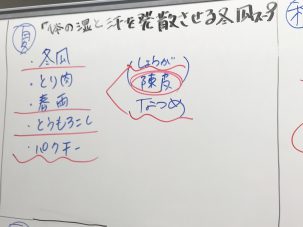 夏 「体の湿と汗を発散させる冬瓜スープ
・冬瓜
・とり肉
・春雨
・とうもろこし
・パクチー
しょうが
陳皮
なつめ